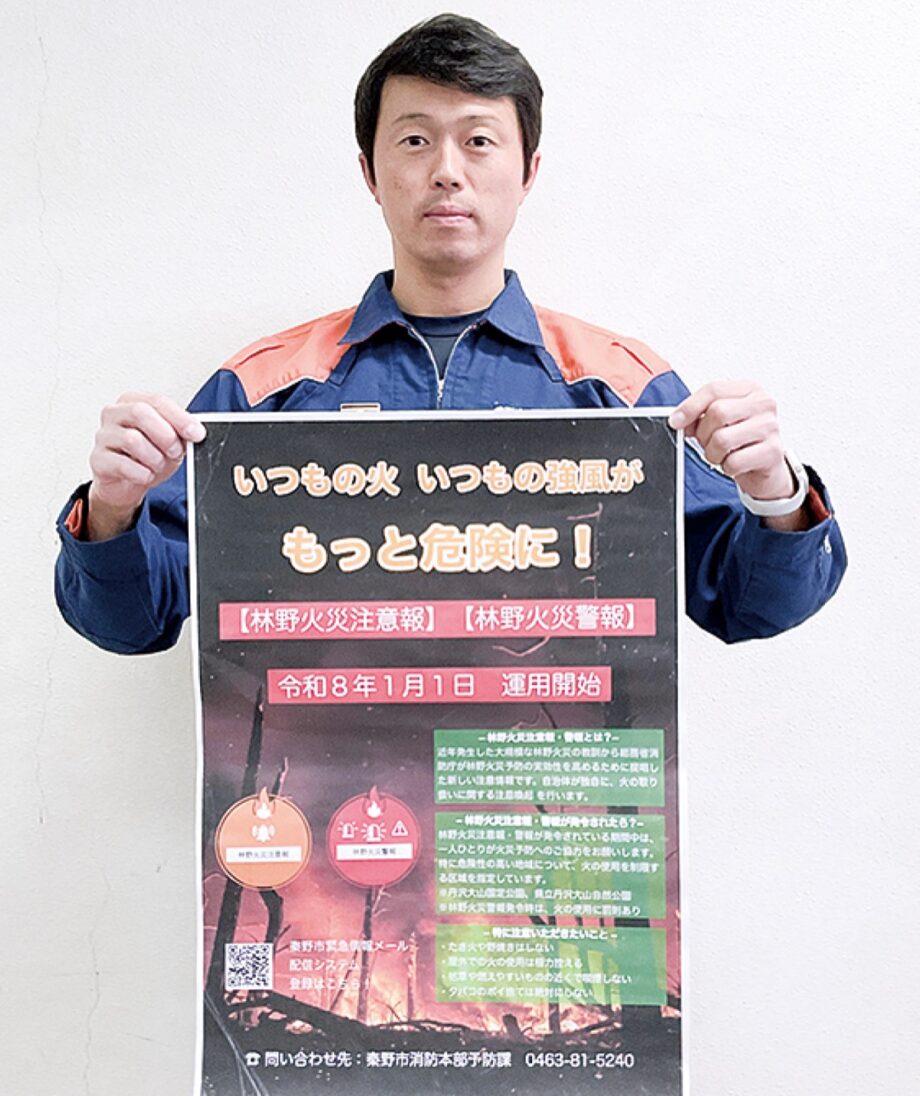 いつもの火 いつもの強風が
もっと危険に！
【林野火災注意報】【林野火災警報】
令和8年1月1日 運用開始
－林野火災注意報・警報とは？－
近年発生した大規模な林野火災の教訓から総務省消
防庁が林野火災予防の実効性を高めるために提唱し
た新しい注意情報です。自治体が独自に、火の取り
扱いに関する注意喚起 を行います。
林野火災注意報
林野火災警報
－林野火災注意報・警報が発令されたら？－
林野火災注意報・警報が発令されている期間中は、
一人ひとりが火災予防へのご協力をお願いします。
特に危険性の高い地域について、火の使用を制限す
る区域を指定しています。
※丹沢大山国定公園、県立丹沢大山自然公園
※林野火災警報発令時は、火の使用に罰則あり
－特に注意いただきたいこと－
・たき火や野焼きはしない
・屋外での火の使用は極力控える
・枯草や燃えやすいものの近くで喫煙しない
・タバコのポイ捨ては絶対にしない
秦野市緊急情報メール
配信システム
登録はこちら！
☎ 問い合わせ先：秦野市消防本部予防課 0463-81-5240